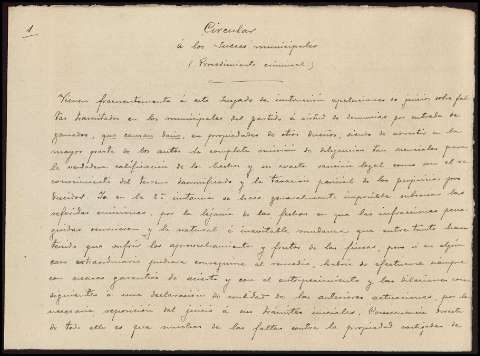 1
Circular
á los Jueces municipales
(Procedimiento criminal)
Vienen frecuentemente á este Juzgado de instrucción apelaciones de juicios sobre fal
tas tramitados en los municipales del partido á virtud de denuncias por entrada de
ganados, que causan daño, en propiedades de otros dueños, siendo de advertir en la
mayor parte de los autos la completa omisión de diligencias tan esenciales para
la verdadera calificación de los hechos y su exacta sanción legal como son el re
conocimiento del terreno damnificado y la tasación pericial de los perjuicios pro
ducidos. Ya en la 2ª instancia se hace generalmente imposible subsanar las
referidas omisiones, por lo lejano de las fechas en que las infracciones perse
guidas ocurrieron y la natural é inevitable mudanza que entre tanto han
tenido que sufrir los aprovechamientos y frutos de las fincas, pero si en algún
caso extraordinario pudiera conseguirse el remedio, habría de efectuarse siempre
con escasas garantías de acierto y con el entorpecimiento y las dilaciones con
siguientes á una declaración de nulidad de las anteriores actuaciones, por la
necesaria reposición del juicio á sus trámites iniciales. Consecuencia directa
de todo ello es que muchas de las faltas contra la propiedad castigadas de